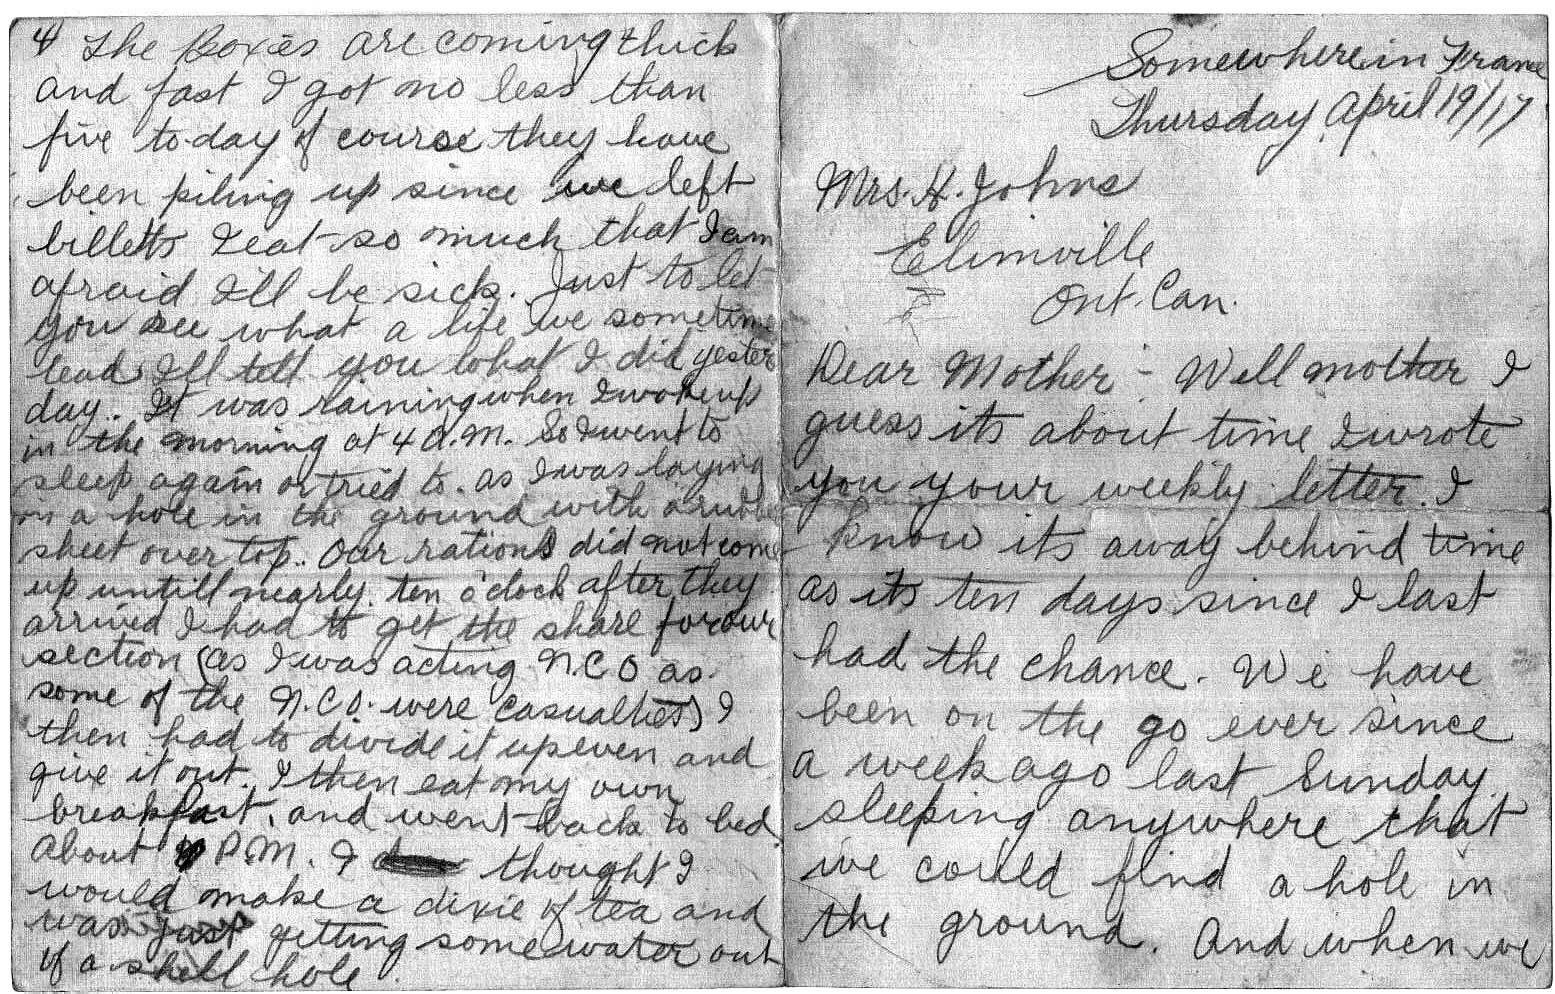 4 The Boxes are coming thick
and fast I got no less than
five today of course they have
been piling up since we left
billetts I eat so much that I am
afraid I'll be sick. Just to let
you see what a life we sometime
lead I'll tell you what I did yester
day. It was raining when I woke up
in the morning at 4 A.M. So I went to
sleep again or tried to. as I was laying
in a hole in the ground with a rubber
sheet over top. Our rations did not come
up untill nearly ten o'clock after they
arrived I had to get the share for our
section (as I was acting N.C.O as
some of the N.C.O. were casualties) I
then had to divide it up even and
give it out. I then eat my own
breakfast, and went back to bed
About P.M. I thought I
would make a dixie of tea and
was just getting some water out
of a shell hole.
Somewhere in France
Thursday April 19/17
Mrs. H. Johns
Elimville
Ont. Can.
Dear Mother - Well mother I
guess its about time I wrote
you your weekly letter. I
know its away behind time
as its ten days since I last
had the chance. We have
been on the go ever since
a week ago last Sunday
sleeping anywhere that
we could find a hole in
the ground. And when we